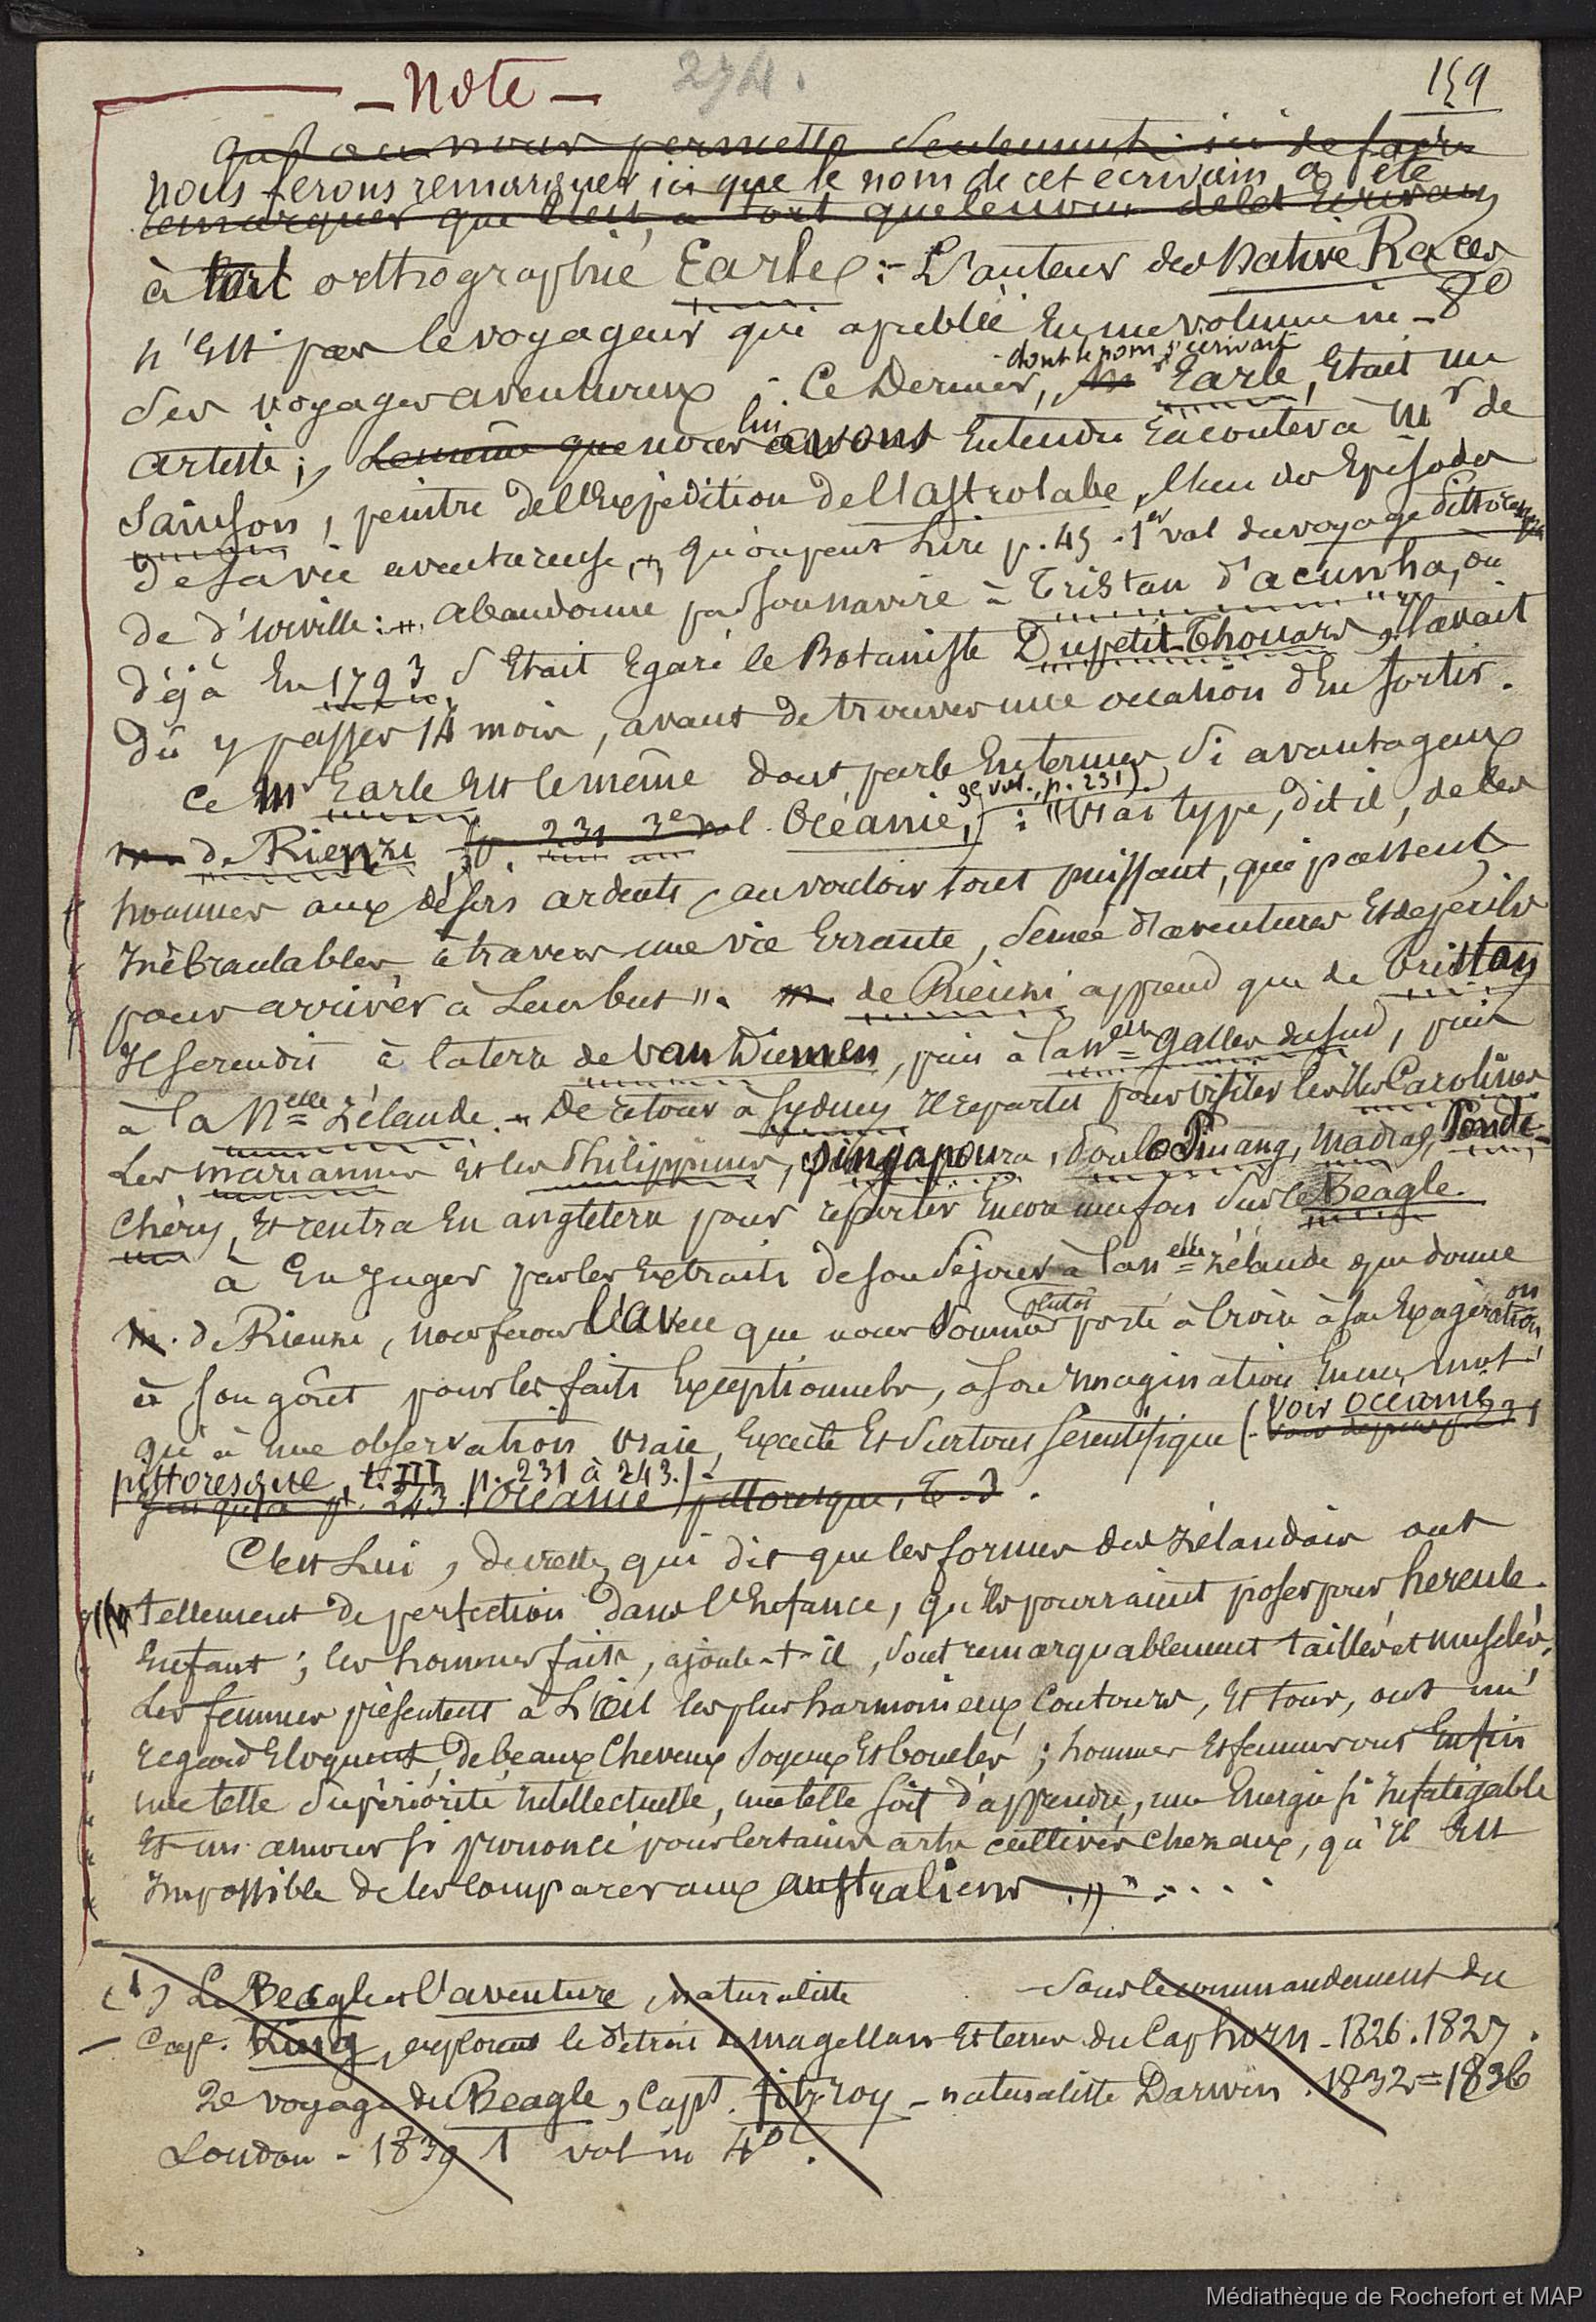 - Note -
274.
159
qu'on nous permette seulement ici de faire
nous ferons remarquer ici que le nom de cet écrivain a été
remarquer que c'est à tort que le nom de cet Ecrivain
à tort orthographié Earle :- L'auteur des Native Races
n'Est pas le voyageur qui a publié En un volume in-8º
des voyages aventureux - Ce Dernier, Mr Earle, Etait un
- dont le nom s'écrivait
artiste ; Le même que nous lui avons Entendu raconter à Mr de
Sainson, peintre de l'Expédition de l'Astrolabe, l'un des Episodes
de sa vie aventureuse, qu'on peut lire p. 45 - 1er vol du voyage Pittoresque
de d'Urville : abandonné par son navire à Tristan d'acunha, où
déjà En 1793 s'Etait Egaré le Botaniste Dupetit-Thouars, il avait
dû y passer 14 mois, avant de trouver une occasion d'En sortir.
Ce Mr Earle Est le même dont parle En termes si avantageux
m. de Rienzi (p. 231 3e vol. Océanie, 3e vol., p. 231) : "Vrai type, dit il, de ces
hommes aux désirs ardents, au vouloir tout puissant, qui passent
Inébranlables, à travers une vie Errante, semée d'aventures Et de périls
pour arriver à Leur but ". m. de Rienzi apprend que de Tristan
Il se rendit à la terre de Van Diemen, puis à la Nelle Galles du Sud, puis
à la Nelle Zélande. - De retour à Sydney Il repartit pour visiter les Iles Carolines
Les Mariannes et les Philippines, Singapoure, Poulo Pinang, Madras, Pondi-
chéry, Et rentra En angleterre pour repartir Encore une fois sur le Beagle.
à En Juger par les Extraits de son séjour à la Nelle Zélande que donne
m. de Rienzi, nous ferons l'aveu que nous sommes plutôt porté à croire à son Exagération
à son goût pour les faits Exceptionnels, à son Imagination En un mot
qu'à une observation vraie, Exacte Et surtout scientifique (- Voir Océanie
pittoresque, t. III p. 231 à 243.) -
jusqu'à p. 243. / Océanie pittoresque, T. 3 .
C'Est Lui, du reste, qui dit que les formes des Zélandais ont
tellement de perfection dans l'Enfance, qu'Ils pourraient poser pour hercule
Enfant ; les hommes faits, ajoute-t-il, sont remarquablement taillés et musclés,
Les femmes présentent à L'œil les plus harmonieux Contours, Et tous, ont un
regard Eloquent, de beaux Cheveux soyeux Et bouclés ; hommes Et femmes ont Enfin
une telle supériorité Intellectuelle, une telle soif d'apprendre, une Energie si Infatigable
Et un amour si prononcé pour certains arts cultivés chez eux, qu'Il Est
Impossible de les comparer aux australiens ." . . . .
(1) Le Beagle et l'aventure, naturaliste - sous le commandement du
- Cap. King, explorent le détroit de magellan Et terres du Cap horn - 1826. 1827.
2e voyage du Beagle, Capt. fitz-roy - naturaliste Darwin . 1832=1836
London - 1839 1 vol in 4º.
Médiathèque de Rochefort et MAP